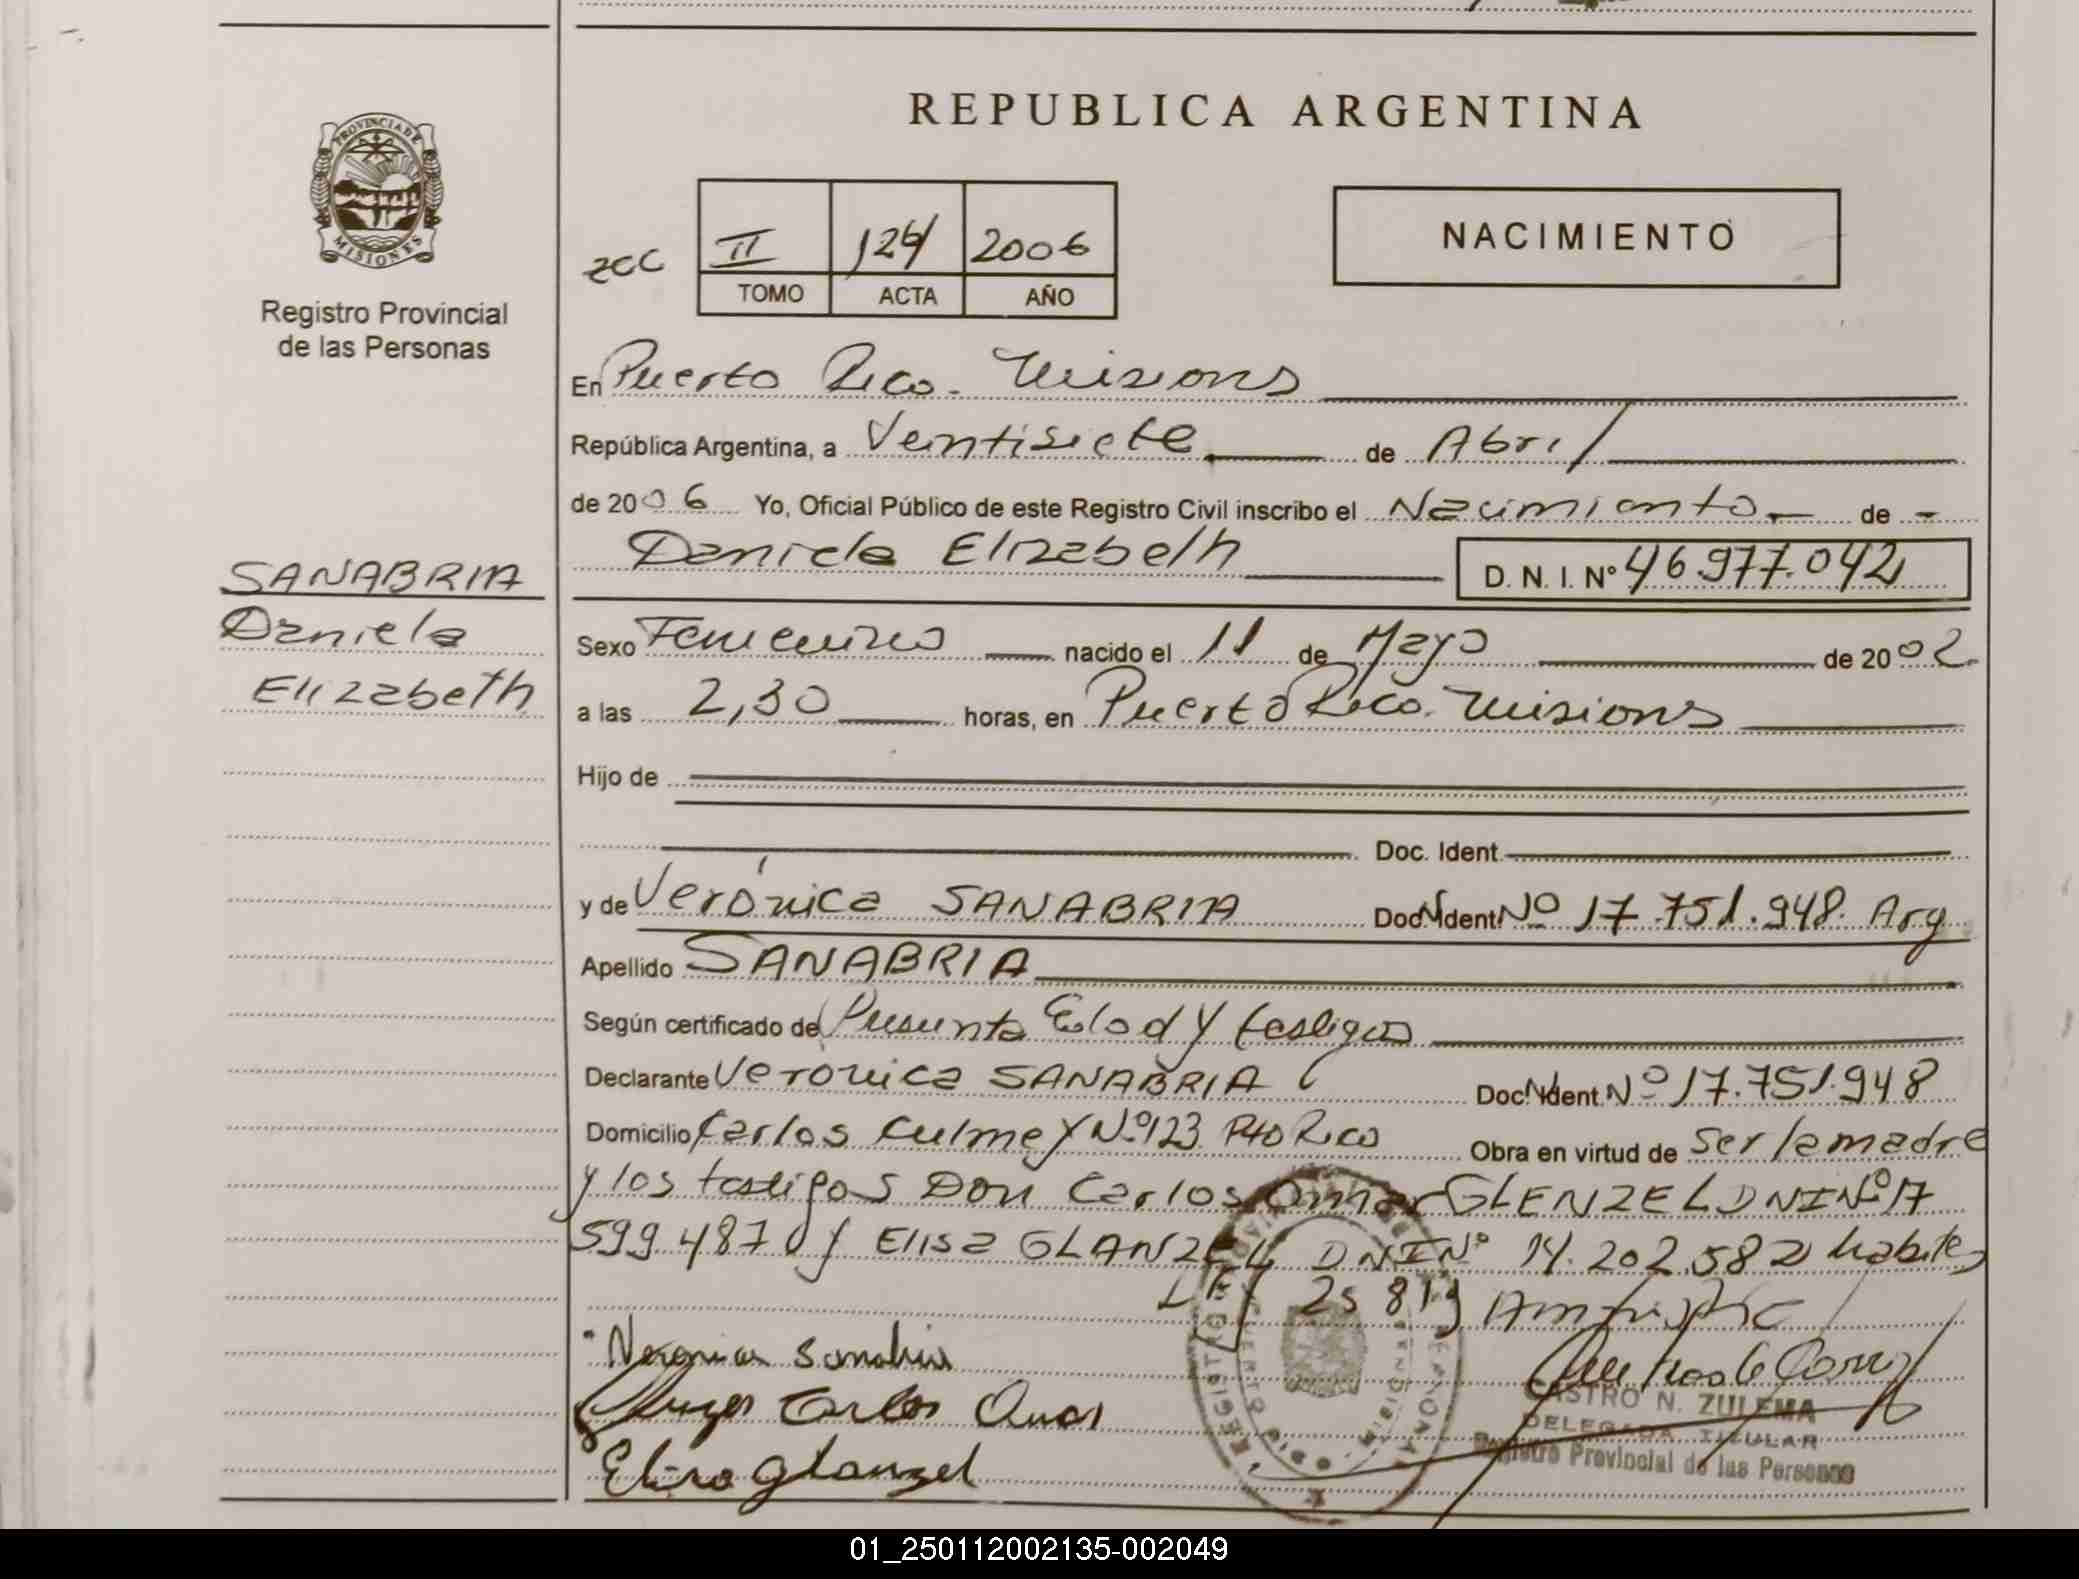 REPUBLICA ARGENTINA
PROVINCIA DE
MISIONES
Registro Provincial
de las Personas
II 126 2006
TOMO ACTA AÑO
NACIMIENTO
En Puerto Rico. Misions
República Argentina, a Veintisiete de Abril
de 2006 Yo, Oficial Público de este Registro Civil inscribo el Nacimiento de
Daniela Elizabeth D. N. I. Nº 46.977.042
SANABRIA
Daniela
Elizabeth
Sexo Femenino nacido el 11 de Mayo de 2002.
a las 2,30 horas, en Puerto Rico. Misions
Hijo de
Doc. Ident.
y de Verónica SANABRIA Doc. Ident. Nº 17.751.948. Arg
Apellido SANABRIA
Según certificado de Presunta Edad y testigos
Declarante Verónica SANABRIA Doc. Ident. Nº 17.751.948
Domicilio Carlos Culmey Nº 123 Pto Rico Obra en virtud de ser la madre
y los testigos Don Carlos Omar GLENZEL DNI Nº 17
599.487 y Elisa GLANZEL DNI Nº 14.202.582 habites
Ley 25 819
Veronica Sanabria
Carlos Omar
Elisa Glanzel
CASTRO N. ZULEMA
DELEGADA TITULAR
Registro Provincial de las Personas
01_250112002135-002049